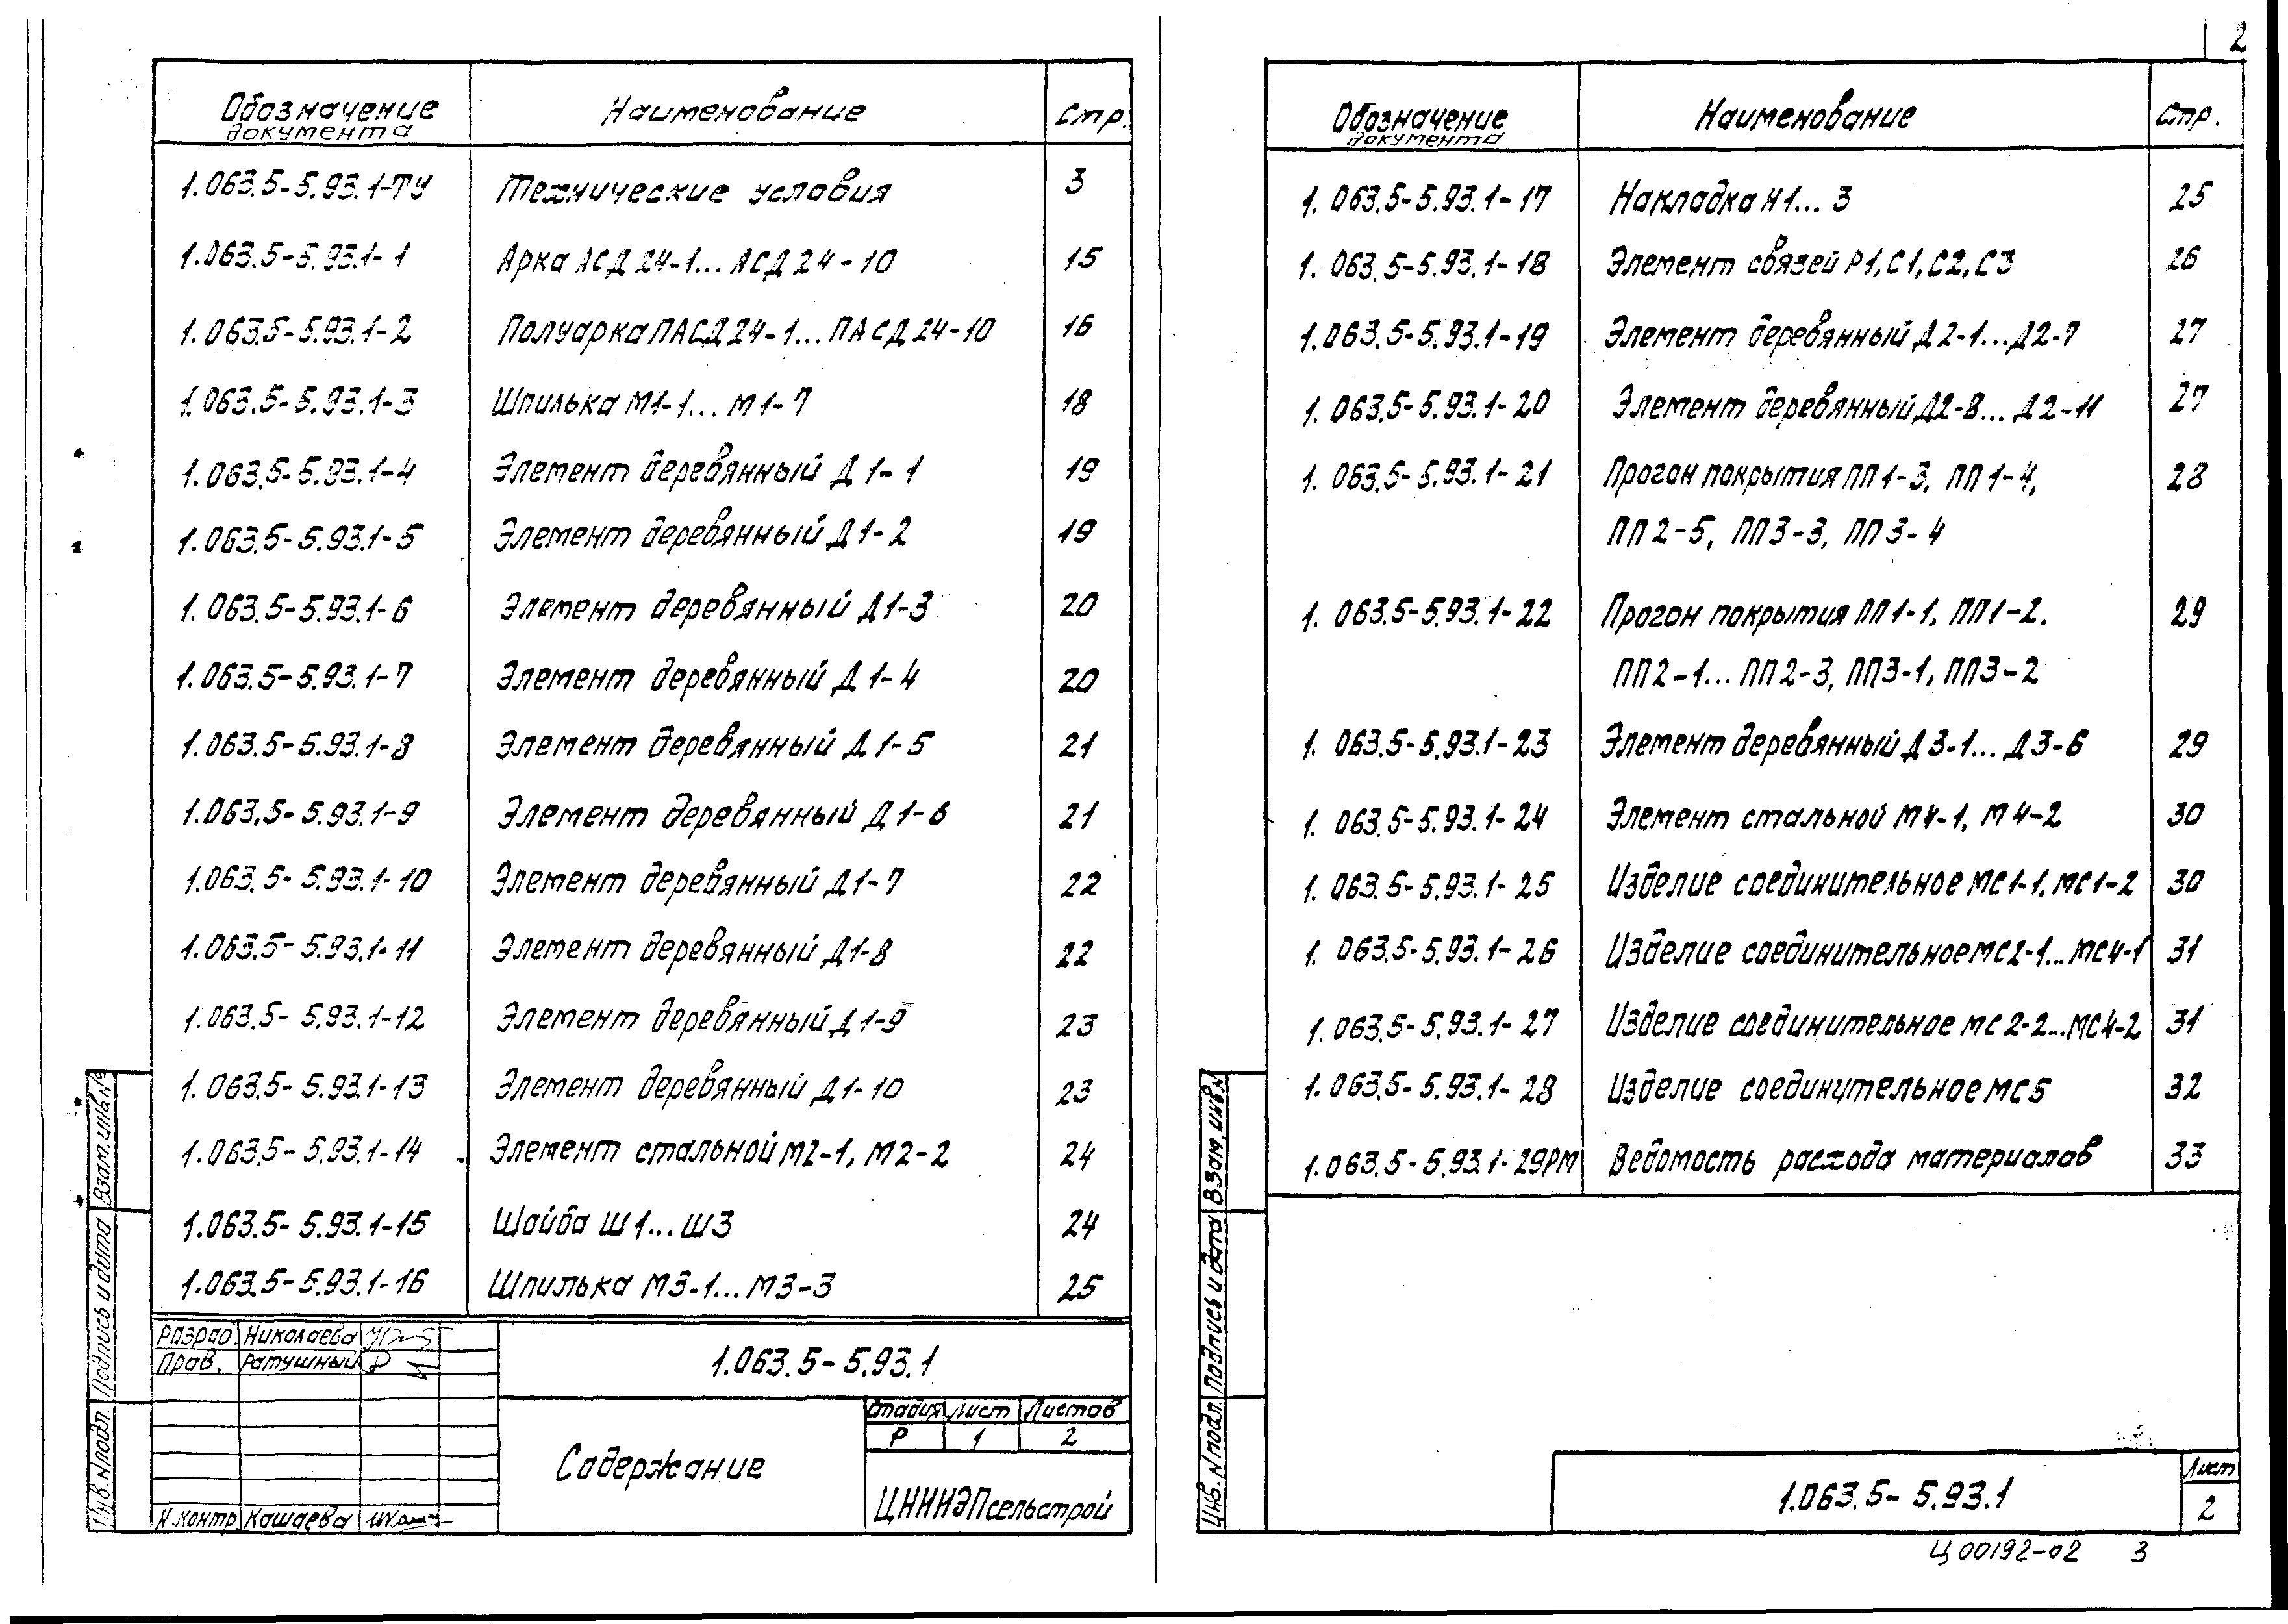 Обозначение документа Наименование Стр.
1.063.5-5.93.1-ТУ Технические условия 3
1.063.5-5.93.1-1 Арка АСД 24-1... АСД 24-10 15
1.063.5-5.93.1-2 Полуарка ПАСД 24-1... ПАСД 24-10 16
1.063.5-5.93.1-3 Шпилька М1-1... М1-7 18
1.063.5-5.93.1-4 Элемент деревянный Д1-1 19
1.063.5-5.93.1-5 Элемент деревянный Д1-2 19
1.063.5-5.93.1-6 Элемент деревянный Д1-3 20
1.063.5-5.93.1-7 Элемент деревянный Д1-4 20
1.063.5-5.93.1-8 Элемент деревянный Д1-5 21
1.063.5-5.93.1-9 Элемент деревянный Д1-6 21
1.063.5-5.93.1-10 Элемент деревянный Д1-7 22
1.063.5-5.93.1-11 Элемент деревянный Д1-8 22
1.063.5-5.93.1-12 Элемент деревянный Д1-9 23
1.063.5-5.93.1-13 Элемент деревянный Д1-10 23
1.063.5-5.93.1-14 Элемент стальной М2-1, М2-2 24
1.063.5-5.93.1-15 Шайба Ш1... Ш3 24
1.063.5-5.93.1-16 Шпилька М3-1... М3-3 25
Разраб. Николаева
Пров. Ратушный
1.063.5-5.93.1
Содержание
Стадия Лист Листов
Р 1 2
Н.контр Кашаева
ЦНИИЭПсельстрой
Инв. N подл. Подпись и дата Взам. инв. N
2
Обозначение документа Наименование Стр.
1.063.5-5.93.1-17 Накладка Н1... 3 25
1.063.5-5.93.1-18 Элемент связей Р1, С1, С2, С3 26
1.063.5-5.93.1-19 Элемент деревянный Д2-1... Д2-7 27
1.063.5-5.93.1-20 Элемент деревянный Д2-8... Д2-11 27
1.063.5-5.93.1-21 Прогон покрытия ПП1-3, ПП1-4, 28
ПП2-5, ПП3-3, ПП3-4
1.063.5-5.93.1-22 Прогон покрытия ПП1-1, ПП1-2. 29
ПП2-1... ПП2-3, ПП3-1, ПП3-2
1.063.5-5.93.1-23 Элемент деревянный Д3-1... Д3-6 29
1.063.5-5.93.1-24 Элемент стальной М4-1, М4-2 30
1.063.5-5.93.1-25 Изделие соединительное МС1-1, МС1-2 30
1.063.5-5.93.1-26 Изделие соединительное МС2-1... МС4-1 31
1.063.5-5.93.1-27 Изделие соединительное МС2-2... МС4-2 31
1.063.5-5.93.1-28 Изделие соединительное МС5 32
1.063.5-5.93.1-29РМ Ведомость расхода материалов 33
Инв. N подл. Подпись и дата Взам. инв. N
1.063.5-5.93.1
Лист
2
Ц00192-02 3